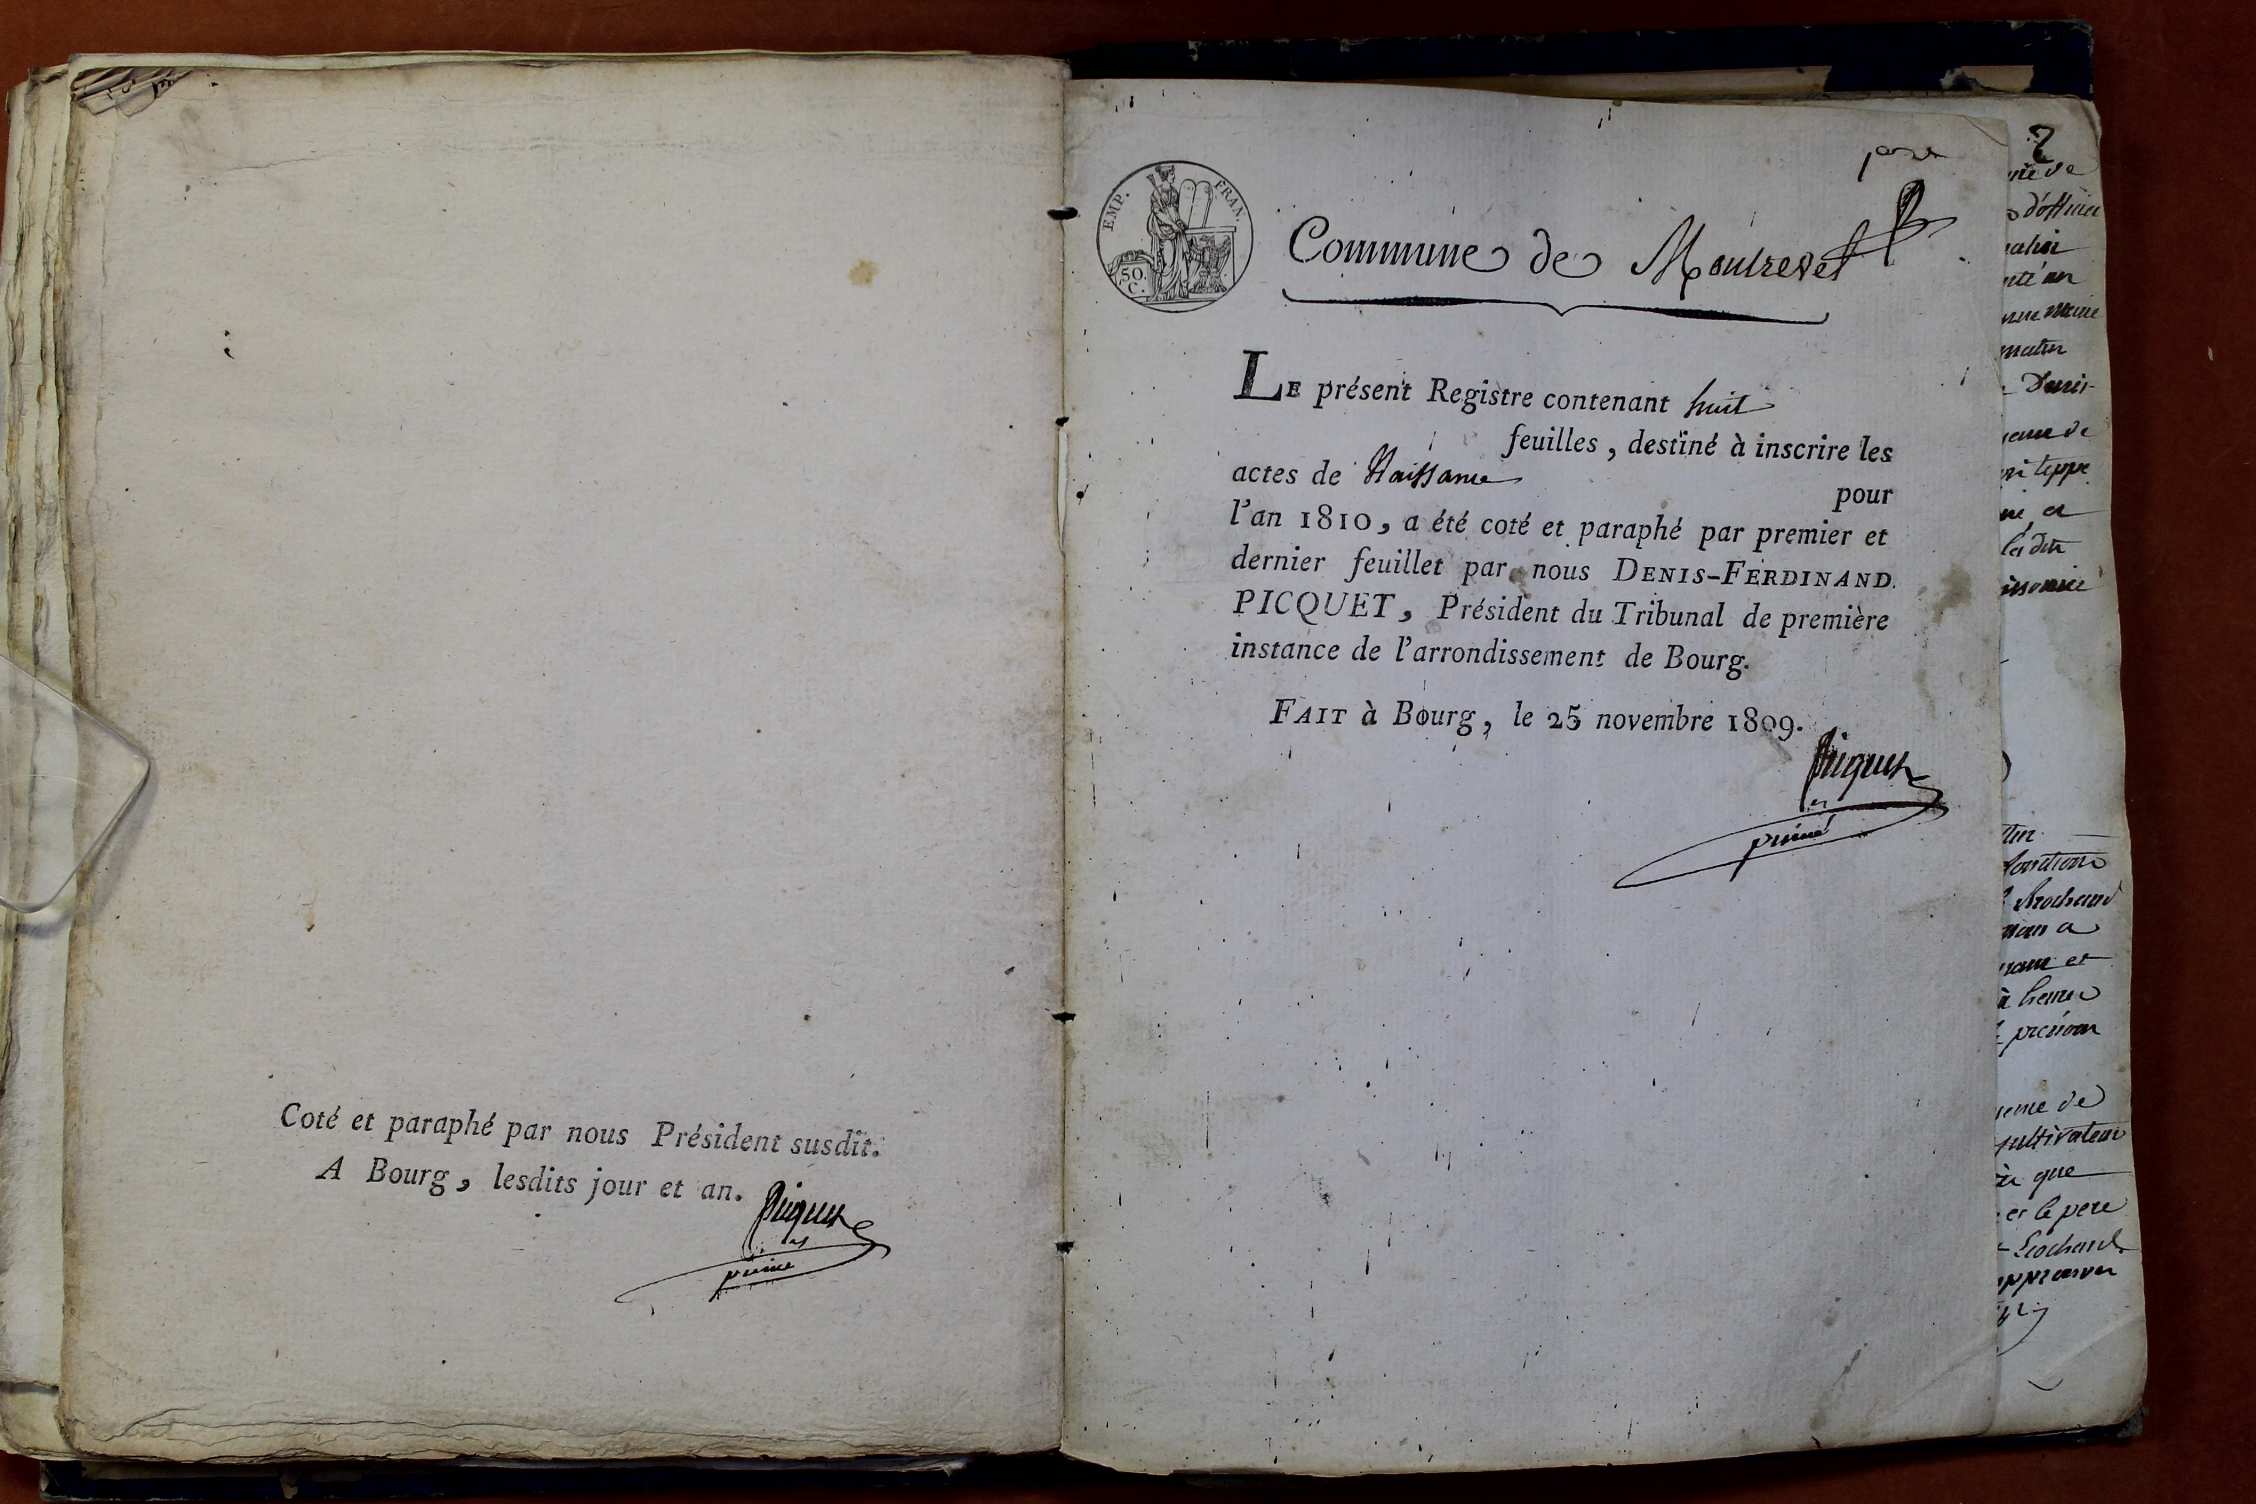 Coté et paraphé par nous Président susdit.
A Bourg, lesdits jour et an.
Picquet
EMP. FRAN.
50.
C.
Commune de Montrevel
LE présent Registre contenant huit
feuilles, destiné à inscrire les
actes de Naissance
pour
l'an 1810, a été coté et paraphé par premier et
dernier feuillet par nous DENIS-FERDINAND
PICQUET, Président du Tribunal de première
instance de l'arrondissement de Bourg.
FAIT à Bourg, le 25 novembre 1809.
Picquet
2
d'officier
matin
Denis-
teppe
et
Brochand
a
et
à
prénom
de
cultivateur
que
et le père
Brochand